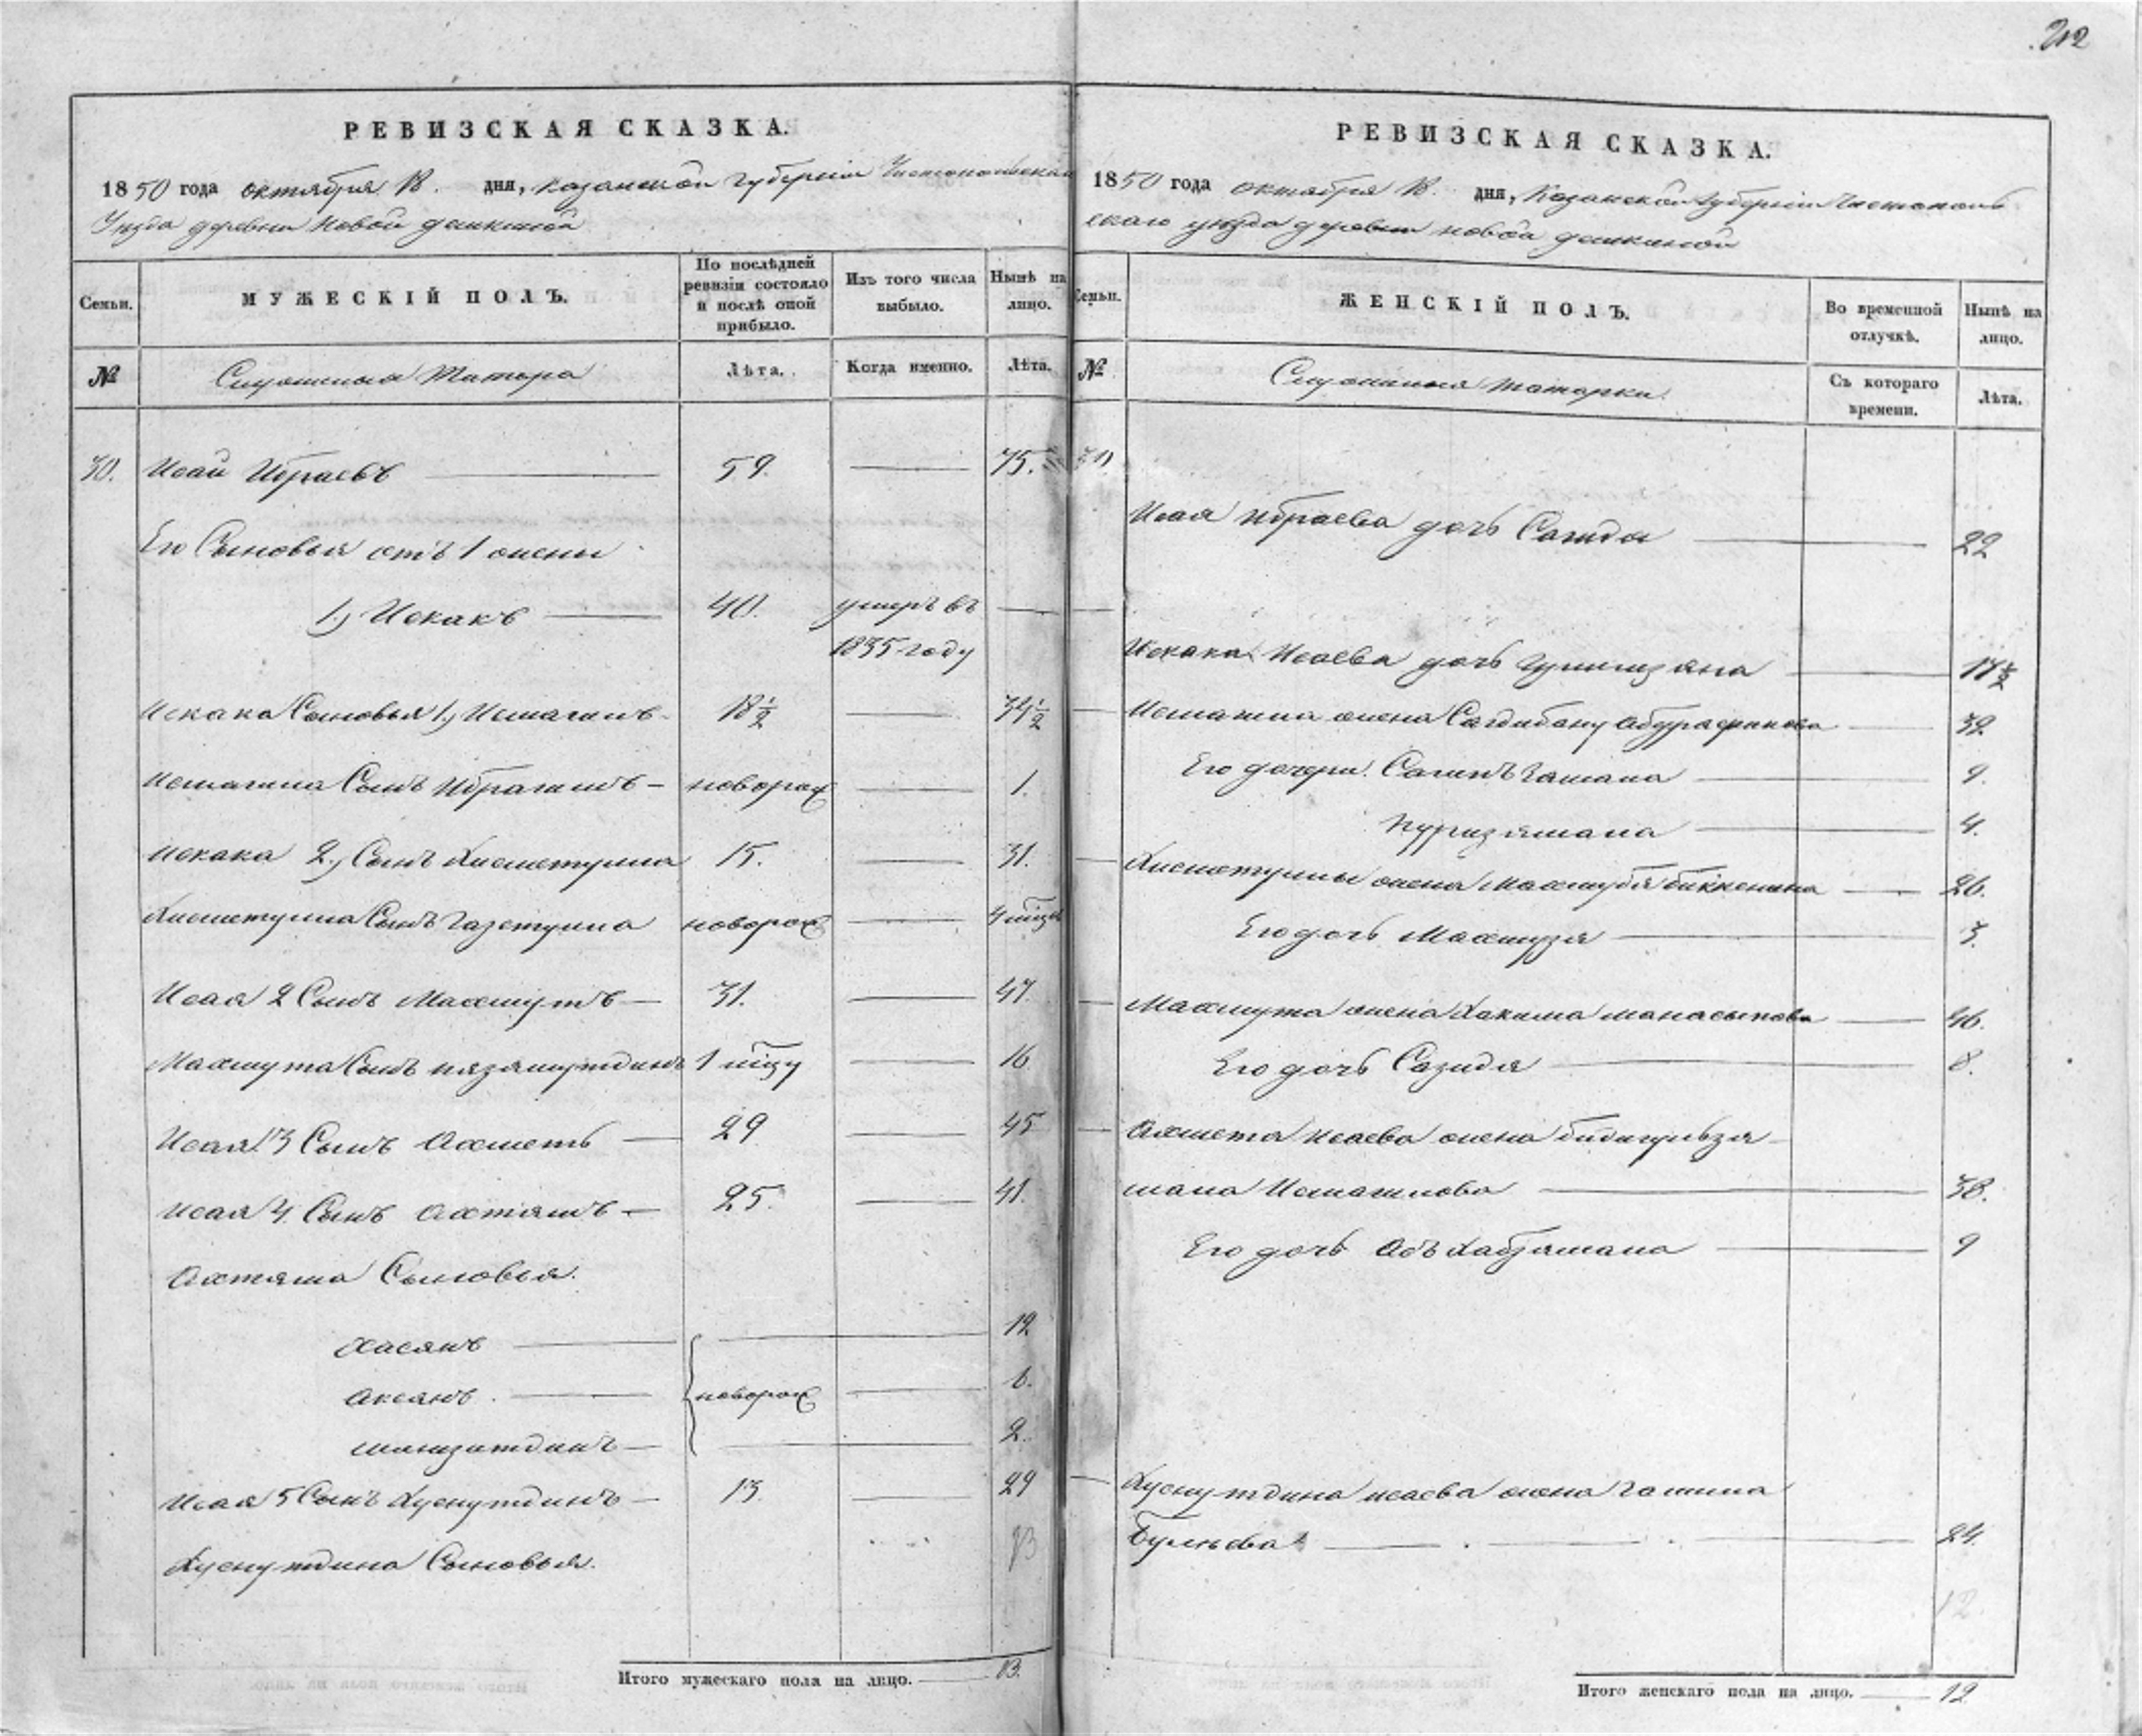 212
РЕВИЗСКАЯ СКАЗКА.
1850 года октября 18. дня, Казанской губернии Чистопольскаго
Уезда деревни Новой
Семьи.
МУЖЕСКІЙ ПОЛЪ.
По послѣдней ревизіи состояло и послѣ оной прибыло.
Изъ того числа выбыло.
Нынѣ на лицо.
№
Служилыя Татара
Лѣта.
Когда именно.
Лѣта.
30. Исай Ибраевъ 59. 75.
Его Сыновья отъ 1 жены
1.) Искакъ 40. умеръ въ
1835 году
Искака Сыновья 1.) Исмагилъ 18 1/2 34 1/2
Исмагила Сынъ Ибрагимъ новорож 1.
Искака 2.) Сынъ Хисметулла 15. 31.
Хисметулла Сынъ Газетулла новорож 4 мѣця
Исая 2 Сынъ Махмутъ 31. 47.
Махмута Сынъ Нязямутдинъ 1 мѣцу 16
Исая 3 Сынъ Ахметъ 29 45
Исая 4 Сынъ Ахтямъ 25. 41.
Ахтяма Сыновья.
Хасянъ 12
Аксянъ новорож 6.
2.
Исая 5 Сынъ Хуснутдинъ 13. 29
Хуснутдина Сыновья.
13
Итого мужескаго пола на лицо. 13.
РЕВИЗСКАЯ СКАЗКА.
1850 года октября 18. дня, Казанской Губерніи Чистополь
скаго уезда деревни новой
Семьи.
ЖЕНСКІЙ ПОЛЪ.
Во временной отлучкѣ.
Нынѣ на лицо.
№
Служилыя татарки.
Съ котораго времени.
Лѣта.
30.
Исая Ибраева дочь Сагида 22
Искака Исаева дочь 17 1/2
Исмагила жена Сагдибану 32
Его дочери. 9.
Нуризямала 4.
Хисметуллы жена Биккенина 26.
Его дочь 3.
Махмута жена Хакима Манасыпова 46.
Его дочь Сазида 8.
Ахмета Исаева жена Бибигульзя
мала Исмагилова 38.
Его дочь 9
Хуснутдина Исаева жена Галима
24.
12.
Итого женскаго пола на лицо. 12